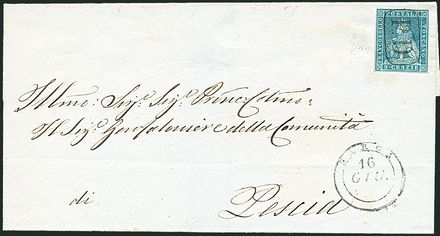 FRANCOBOLLO POSTALE TOSCANO
2 CRAZIE
Illmo: Sigr. Sigr. Prone Colmo:
Il Sigr. Gonfaloniere della Comunità
di Pescia
16
GIU.